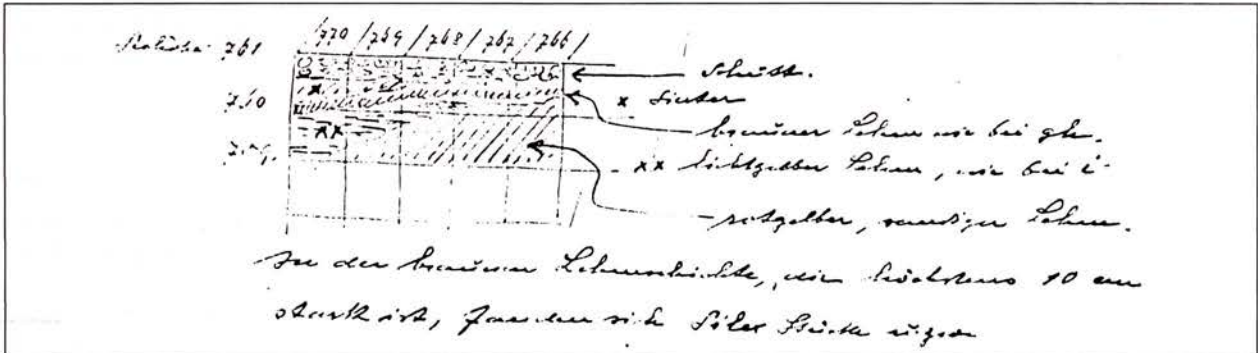 770 / 769 / 768 / 767 / 766 /
761
Schutt.
760
x Sinter
brauner Lehm wie bei gh.
759.
xx lichtgelber Lehm, wie bei i
rotgelber, sandiger Lehm.
In der braunen Lehmschichte, die höchstens 10 cm
stark ist, fanden sich Silex Stücke